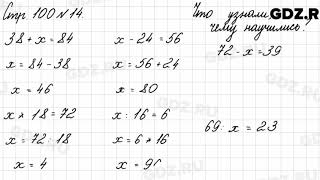 Стр 100 N 14.
38 + x = 84
x = 84 - 38
x = 46
x * 18 = 72
x = 72 : 18
x = 4
x - 24 = 56
x = 56 + 24
x = 80
x : 16 = 6
x = 6 * 16
x = 96
Что узнали,
чему научились?
72 - x = 39
69 : x = 23
GDZ.R